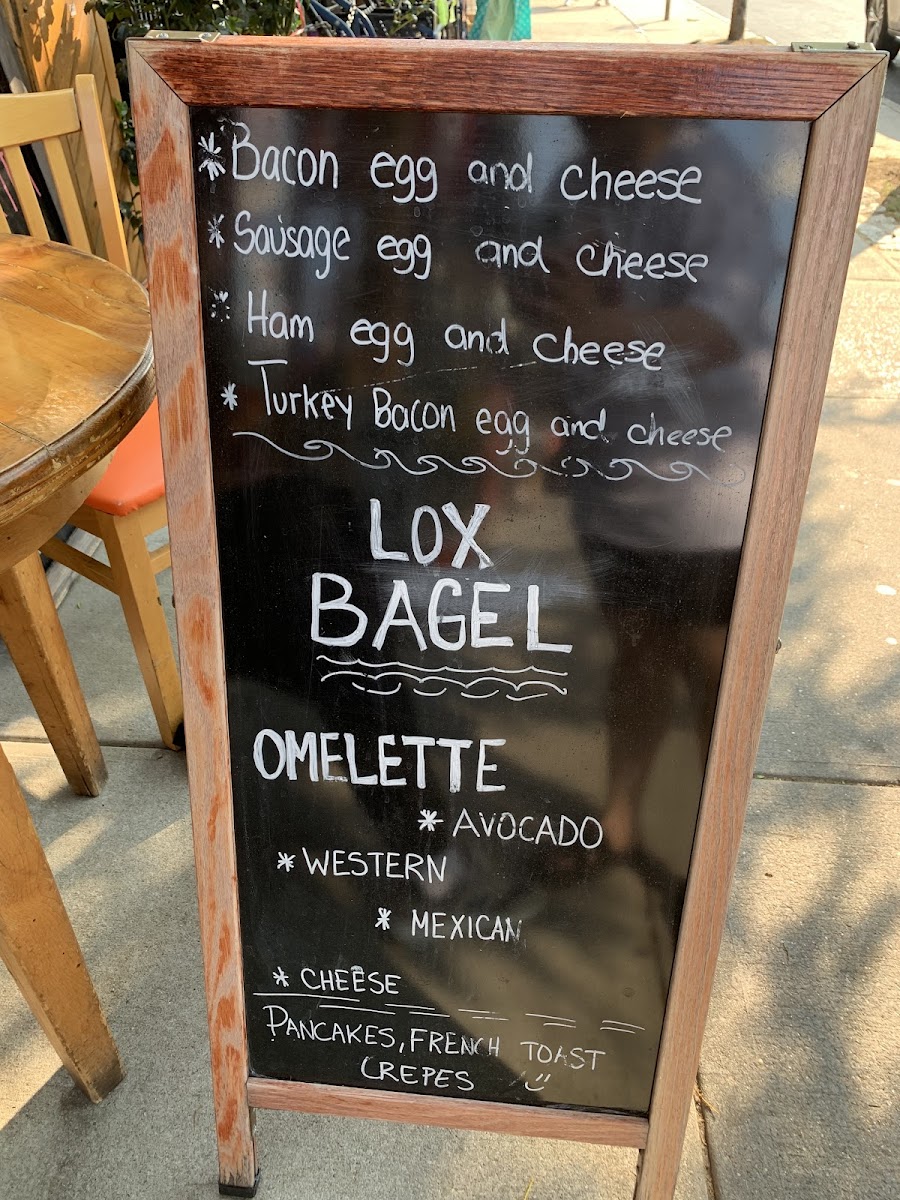 * Bacon egg and cheese
* Sausage egg and cheese
* Ham egg and cheese
* Turkey Bacon egg and cheese
LOX
BAGEL
OMELETTE
* AVOCADO
* WESTERN
* MEXICAN
* CHEESE
PANCAKES, FRENCH TOAST
CREPES